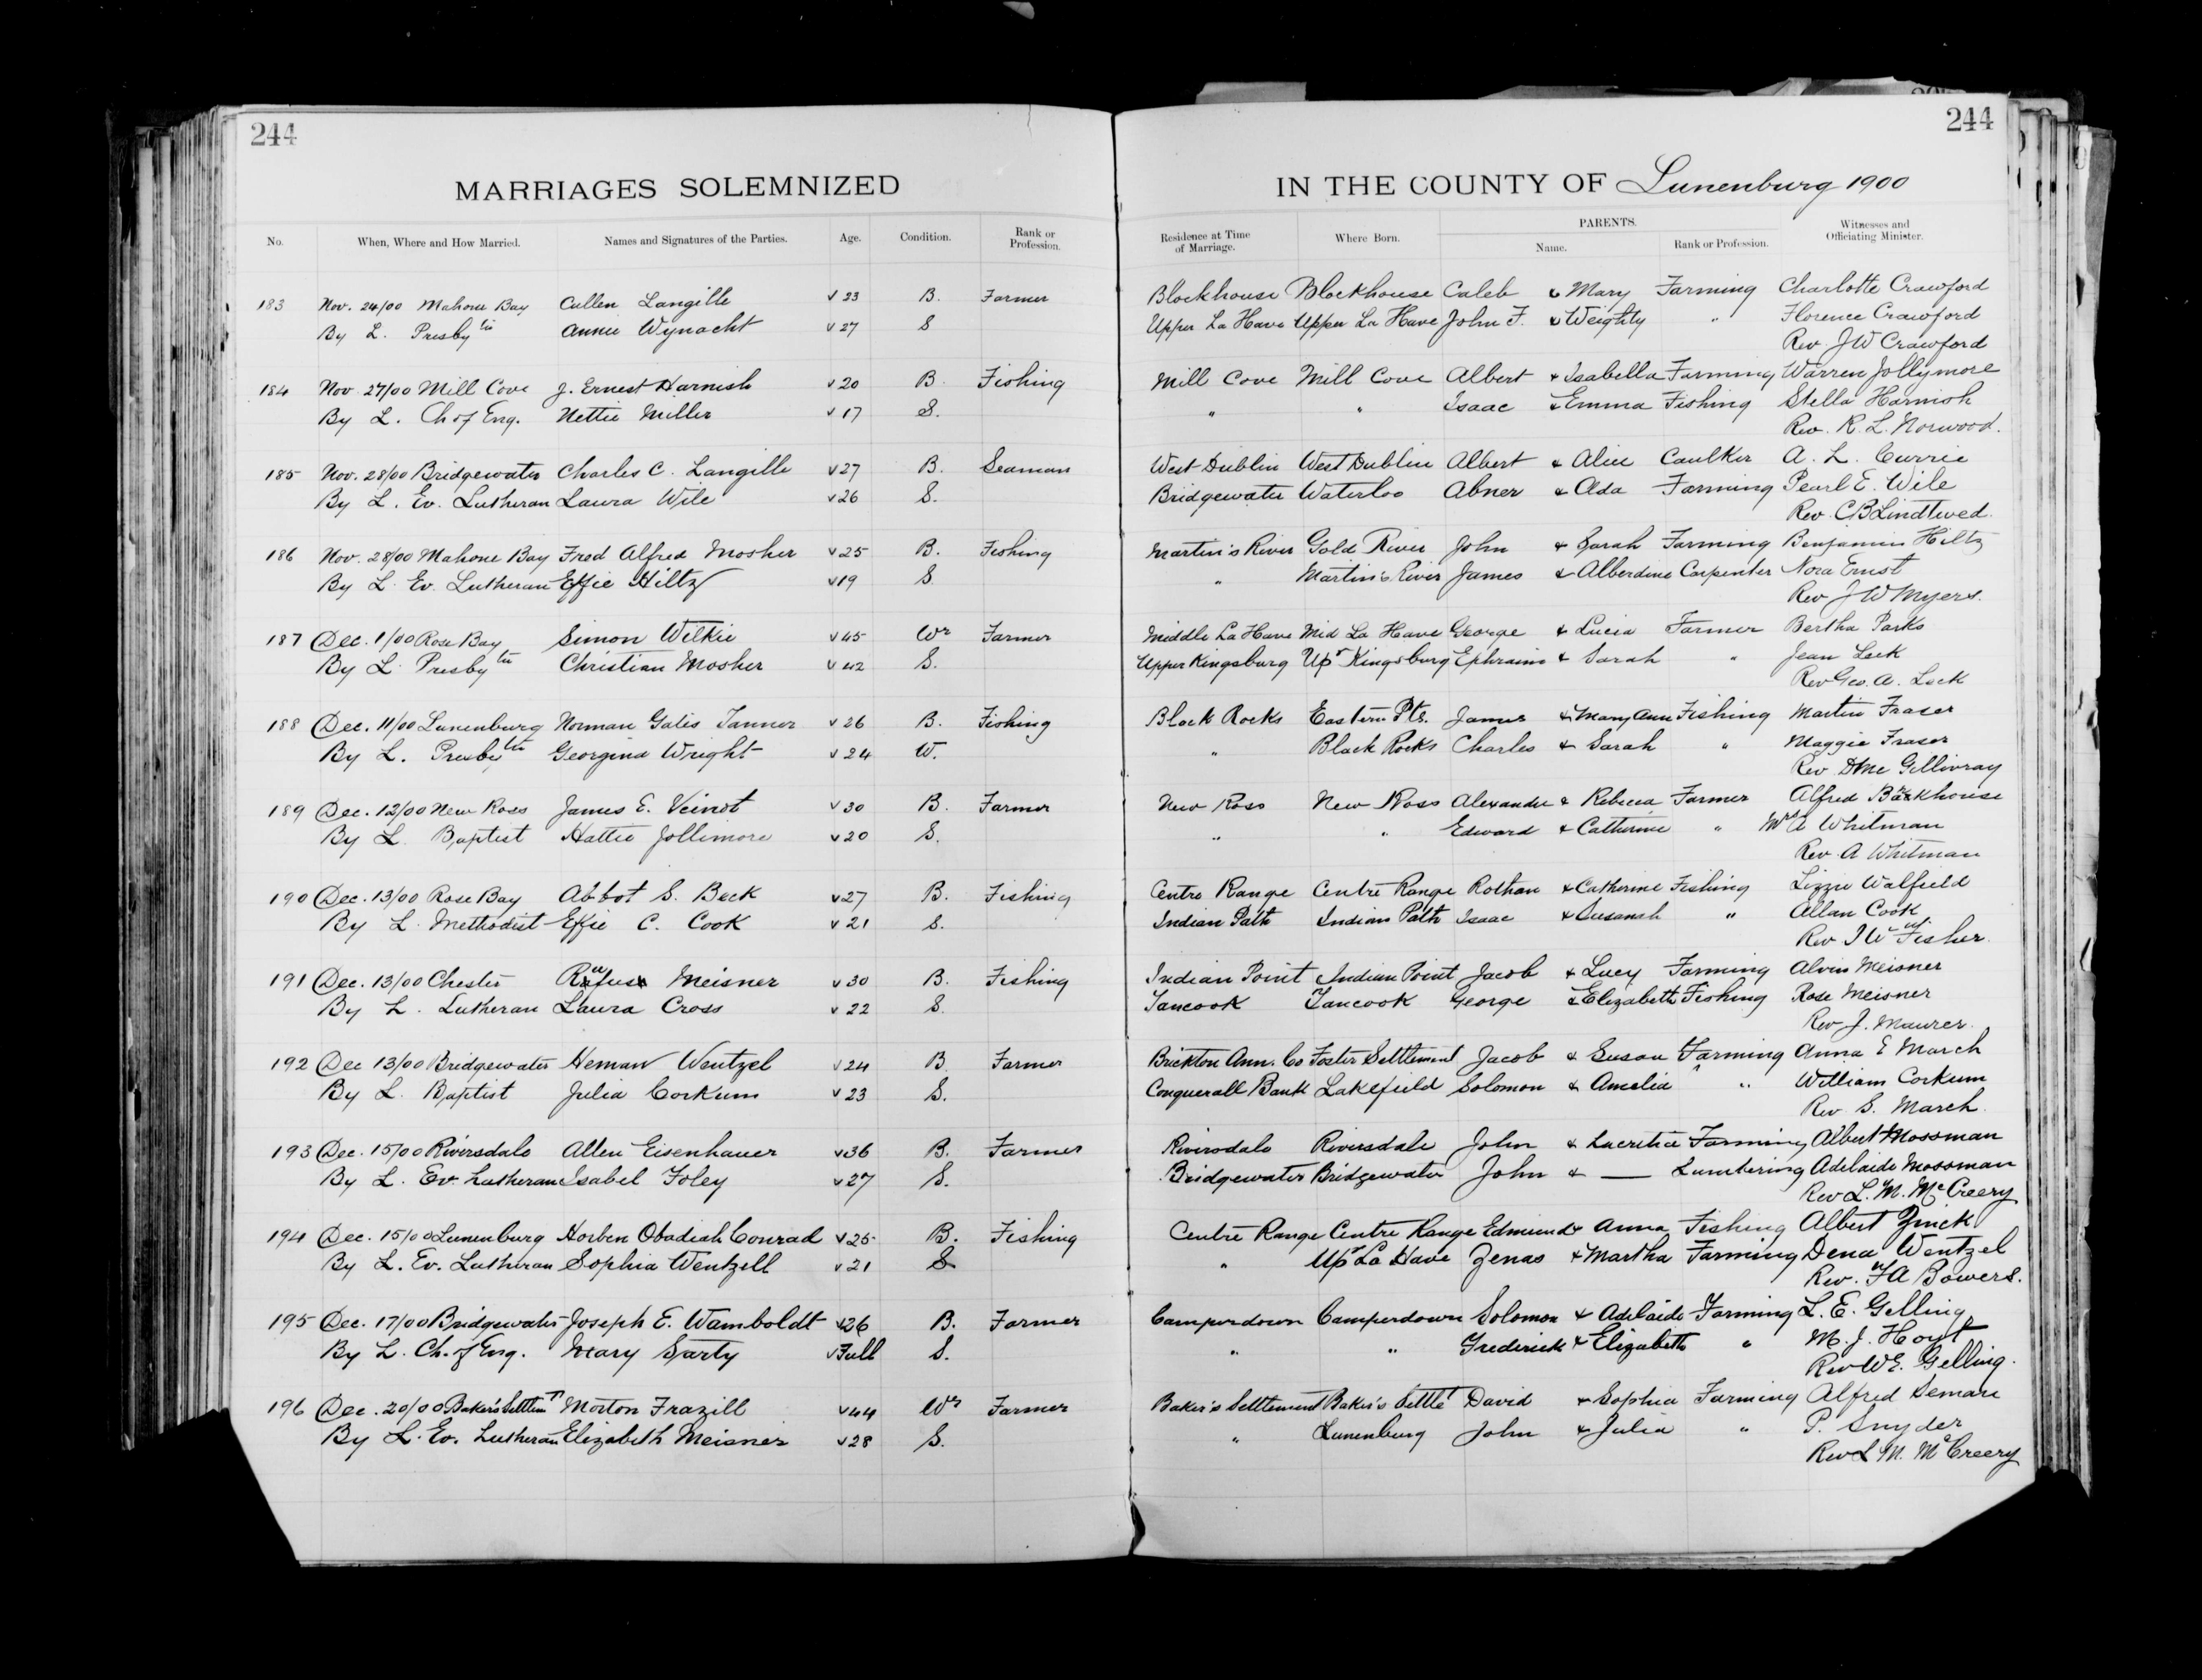 244
244
MARRIAGES SOLEMNIZED IN THE COUNTY OF Lunenburg 1900
No. When, Where and How Married. Names and Signatures of the Parties. Age. Condition. Rank or Profession. Residence at Time of Marriage. Where Born. PARENTS. Name. Rank or Profession. Witnesses and Officiating Minister.
183 Nov. 24/00 Mahone Bay Cullen Langille √ 23 B. Farmer Blockhouse Blockhouse Caleb & Mary Farming Charlotte Crawford
By L. Presbytn Annie Wynacht √ 27 S Upper La Have Upper La Have John F. & Weighty " Florence Crawford
Rev. J W Crawford
184 Nov. 27/00 Mill Cove J. Ernest Harnish √ 20 B. Fishing Mill Cove Mill Cove Albert & Isabella Farming Warren Jollymore
By L. Ch of Eng. Nettie Miller √ 17 S. " " Isaac & Emma Fishing Stella Harnish
Rev. R. L. Norwood.
185 Nov. 28/00 Bridgewater Charles C. Langille √ 27 B. Seaman West Dublin West Dublin Albert & Alice Caulker A. L. Currie
By L. Ev. Lutheran Laura Wile √ 26 S. Bridgewater Waterloo Abner & Ada Farming Pearl E. Wile
Rev. C B Lindtwed.
186 Nov. 28/00 Mahone Bay Fred Alfred Mosher √ 25 B. Fishing Martin's River Gold River John & Sarah Farming Benjamin Hiltz
By L. Ev. Lutheran Effie Hiltz √ 19 S " Martin's River James & Alberdine Carpenter Nora Ernst
Rev J W Myers.
187 Dec. 1/00 Rose Bay Simon Wilkie √ 45 Wr Farmer Middle La Have Mid La Have George & Lucia Farmer Bertha Parks
By L. Presbytn Christian Mosher √ 42 S. Upper Kingsburg Upr Kingsburg Ephraim & Sarah " Jean Leck
Rev Geo. A. Leck
188 Dec. 11/00 Lunenburg Norman Gates Tanner √ 26 B. Fishing Black Rocks Eastern Pts. James & Mary Ann Fishing Martin Fraser
By L. Presbytn Georgina Wright √ 24 W. " Black Rocks Charles & Sarah " Maggie Fraser
Rev D Mc Gillivray
189 Dec. 12/00 New Ross James E. Veinot √ 30 B. Farmer New Ross New Ross Alexander & Rebecca Farmer Alfred Barkhouse
By L. Baptist Hattie Jollimore √ 20 S. " " Edward & Catherine " Mrs A Whitman
Rev. A Whitman
190 Dec. 13/00 Rose Bay Abbot S. Beck √ 27 B. Fishing Centre Range Centre Range Rothan & Catherine Fishing Lizzie Walfield
By L. Methodist Effie C. Cook √ 21 S. Indian Path Indian Path Isaac & Susanah " Allan Cook
Rev J W Fisher.
191 Dec. 13/00 Chester Rufus Meisner √ 30 B. Fishing Indian Point Indian Point Jacob & Lucy Farming Alvin Meisner
By L. Lutheran Laura Cross √ 22 S. Tancook Tancook George & Elizabeth Fishing Rose Meisner
Rev J. Maurer.
192 Dec 13/00 Bridgewater Heman Wentzel √ 24 B Farmer Brickton Ann. Co Foster Settlement Jacob & Susan Farming Anna E March
By L. Baptist Julia Corkum √ 23 S. Conquerall Bank Lakefield Solomon & Amelia " William Corkum
Rev S. March.
193 Dec. 15/00 Riversdale Allen Eisenhauer √ 36 B. Farmer Riversdale Riversdale John & Lucretia Farming Albert Mossman
By L. Ev. Lutheran Isabel Foley √ 27 S. Bridgewater Bridgewater John & — Lumbering Adelaide Mossman
Rev L. M. McCreery
194 Dec. 15/00 Lunenburg Horben Obadiah Conrad √ 25 B. Fishing Centre Range Centre Range Edmund & Anna Fishing Albert Zinck
By L. Ev. Lutheran Sophia Wentzell √ 21 S " Upr La Have Zenas & Martha Farming Dena Wentzel
Rev. F A Bowers.
195 Dec. 17/00 Bridgewater Joseph E. Wamboldt √ 26 B. Farmer Camperdown Camperdown Solomon & Adelaide Farming L. E. Gelling
By L. Ch. of Eng. Mary Sarty √ Full S. " " Frederick & Elizabeth " M. J. Hoyt
Rev W E. Gelling.
196 Dec. 20/00 Baker's Settlemt Morton Frazill √ 44 Wr Farmer Baker's Settlement Baker's Settlet David & Sophia Farming Alfred Seman
By L. Ev. Lutheran Elizabeth Meisner √ 28 S. " Lunenburg John & Julia " P. Snyder
Rev L M. McCreery